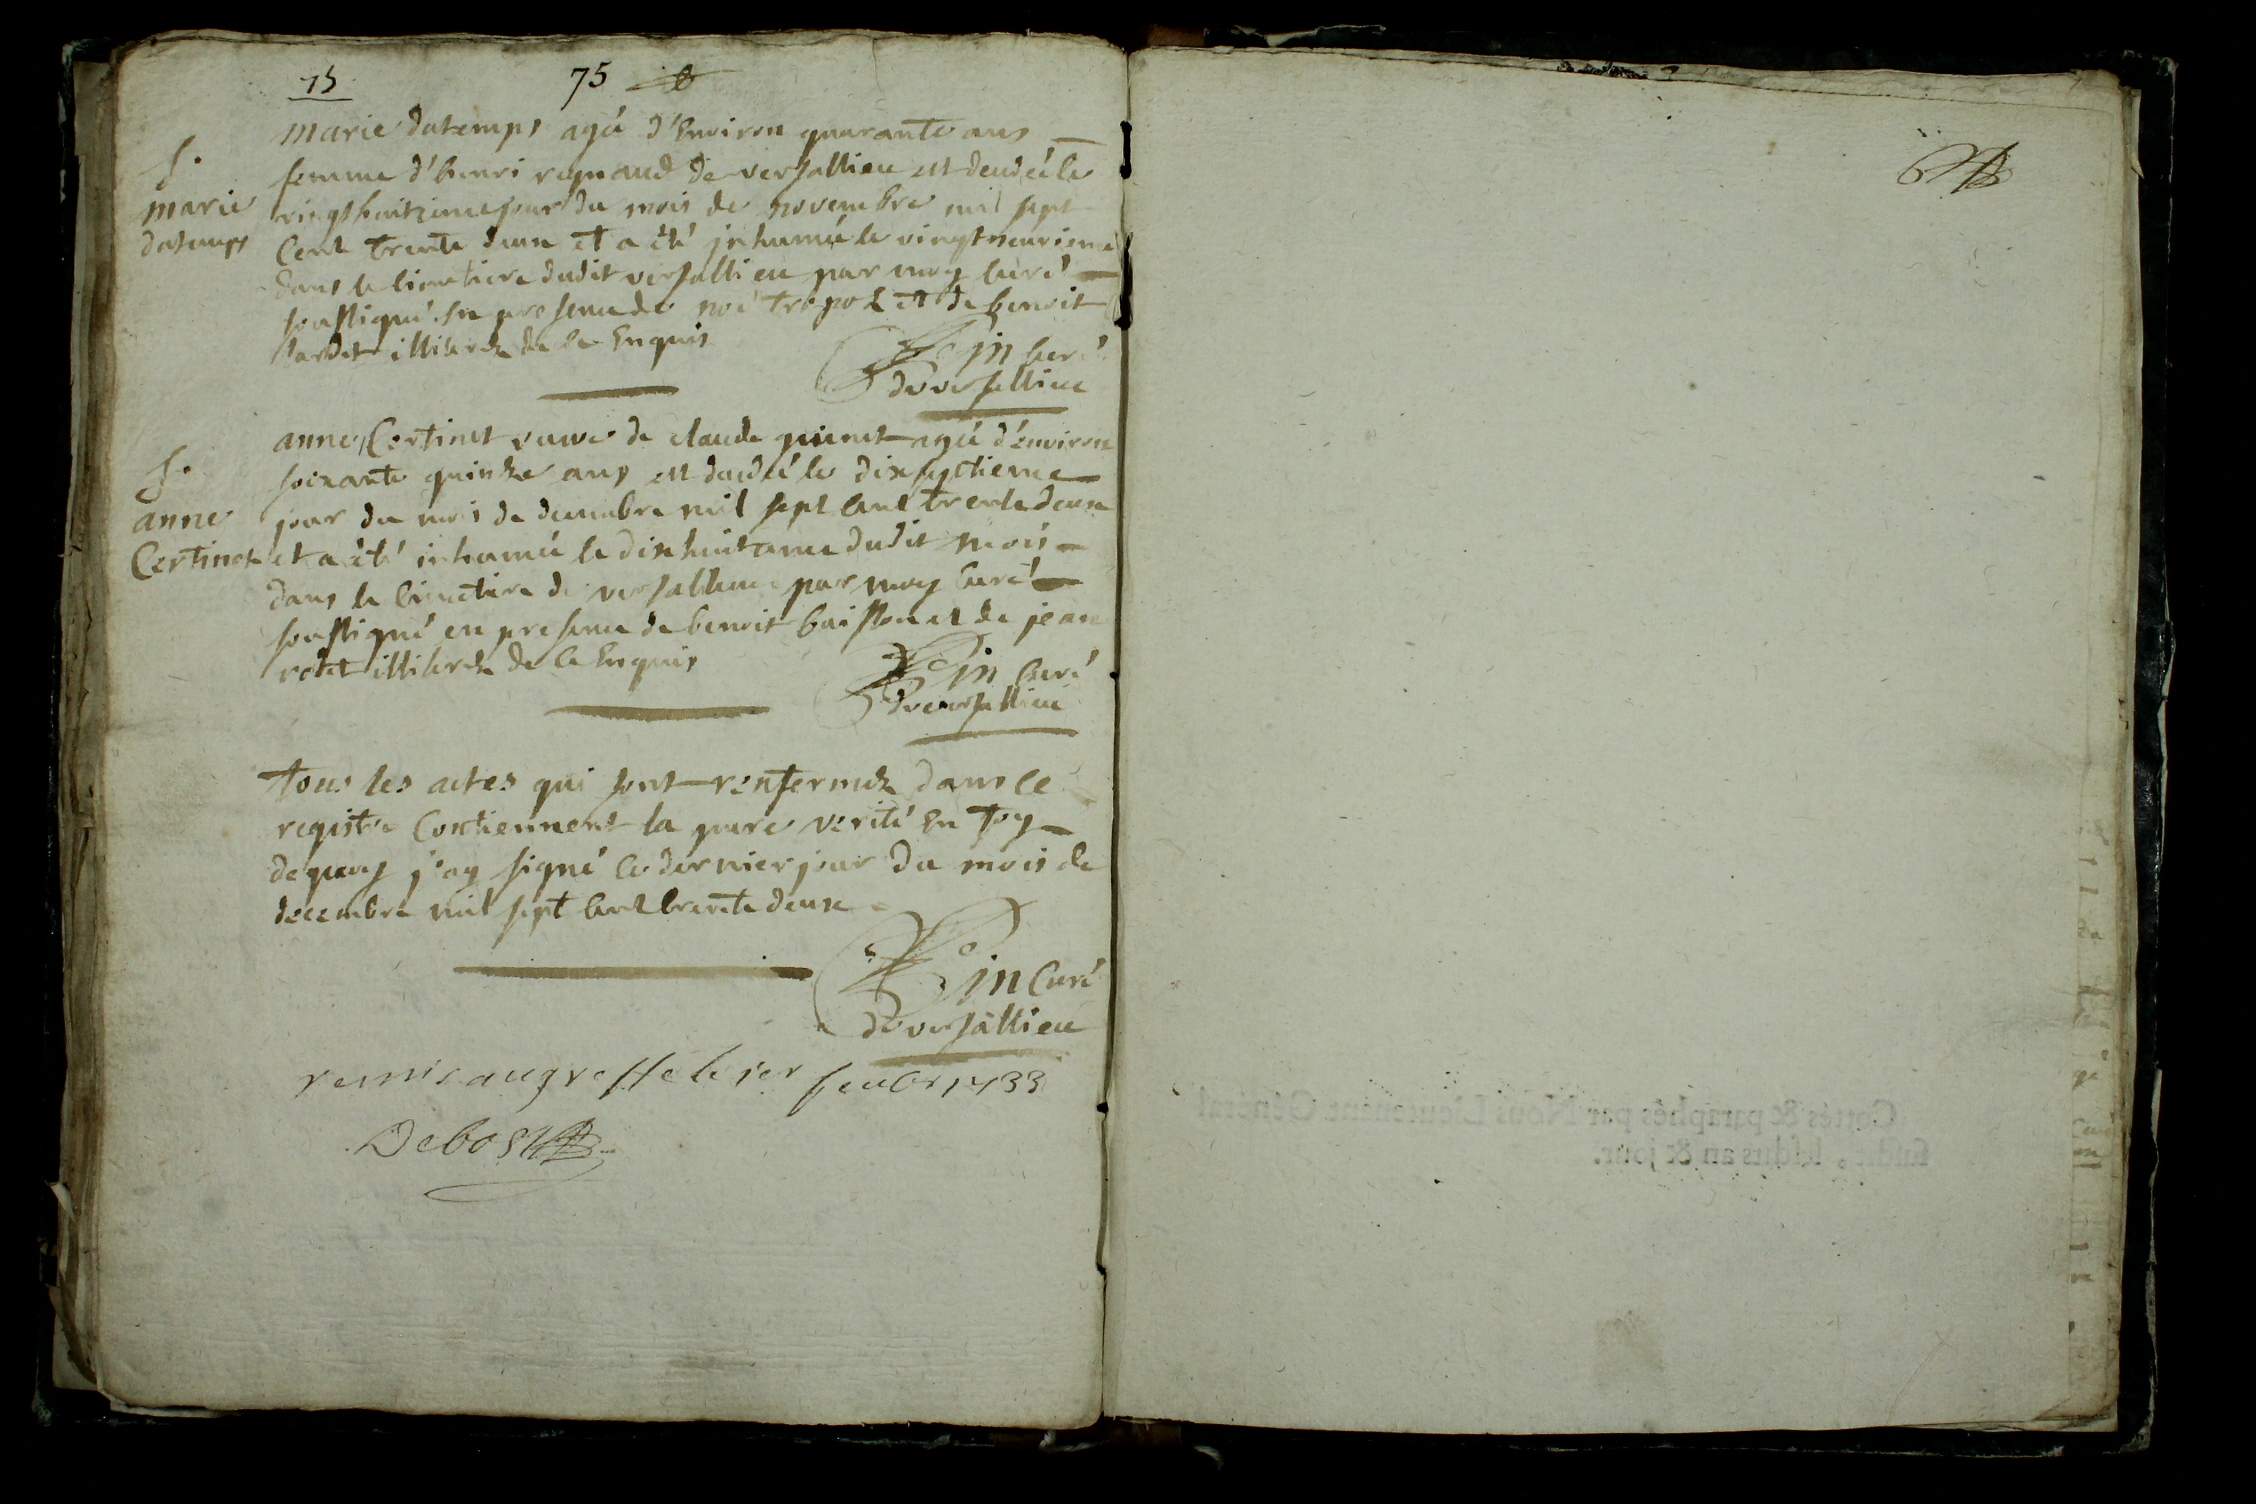 75 75
marie datemps agée d'Environ quarante ans
femme d'henri reynaud de versallieu est decedée le
vingthuitzieme jour du mois de novembre mil sept
Cent trente deux et a été inhumée le vingt neuvieme
dans le Cimetiere dudit versallieu par moy Curé
soussigné En presence de noé tropoz et de benoit
tardet illiterez de ce Enquis
curé
de versallieu
f.
marie
datemps
anne Certinet veuve de claude guinet agée d'environ
soixante quinze ans est decedée le dixseptieme
jour du mois de decembre mil sept cent trente deux
et a été inhumée le dixhuitieme dudit mois
dans le Cimetiere de versallieu par moy Curé
soussigné en presence de benoit buisson et de jean
rotet illiterez de ce Enquis
curé
de versallieu
f.
anne
Certinet
tous les actes qui sont renfermez dans ce
registre Contiennent la pure verité En foy
de quoy j'ay signé le dernier jour du mois de
decembre mil sept cent trente deux
Curé
de versallieu
remis au greffe le 1er feubr 1733
Debost
Cottés & paraphés par Nous Lieutenant Général
susdit, lesdits an & jour.